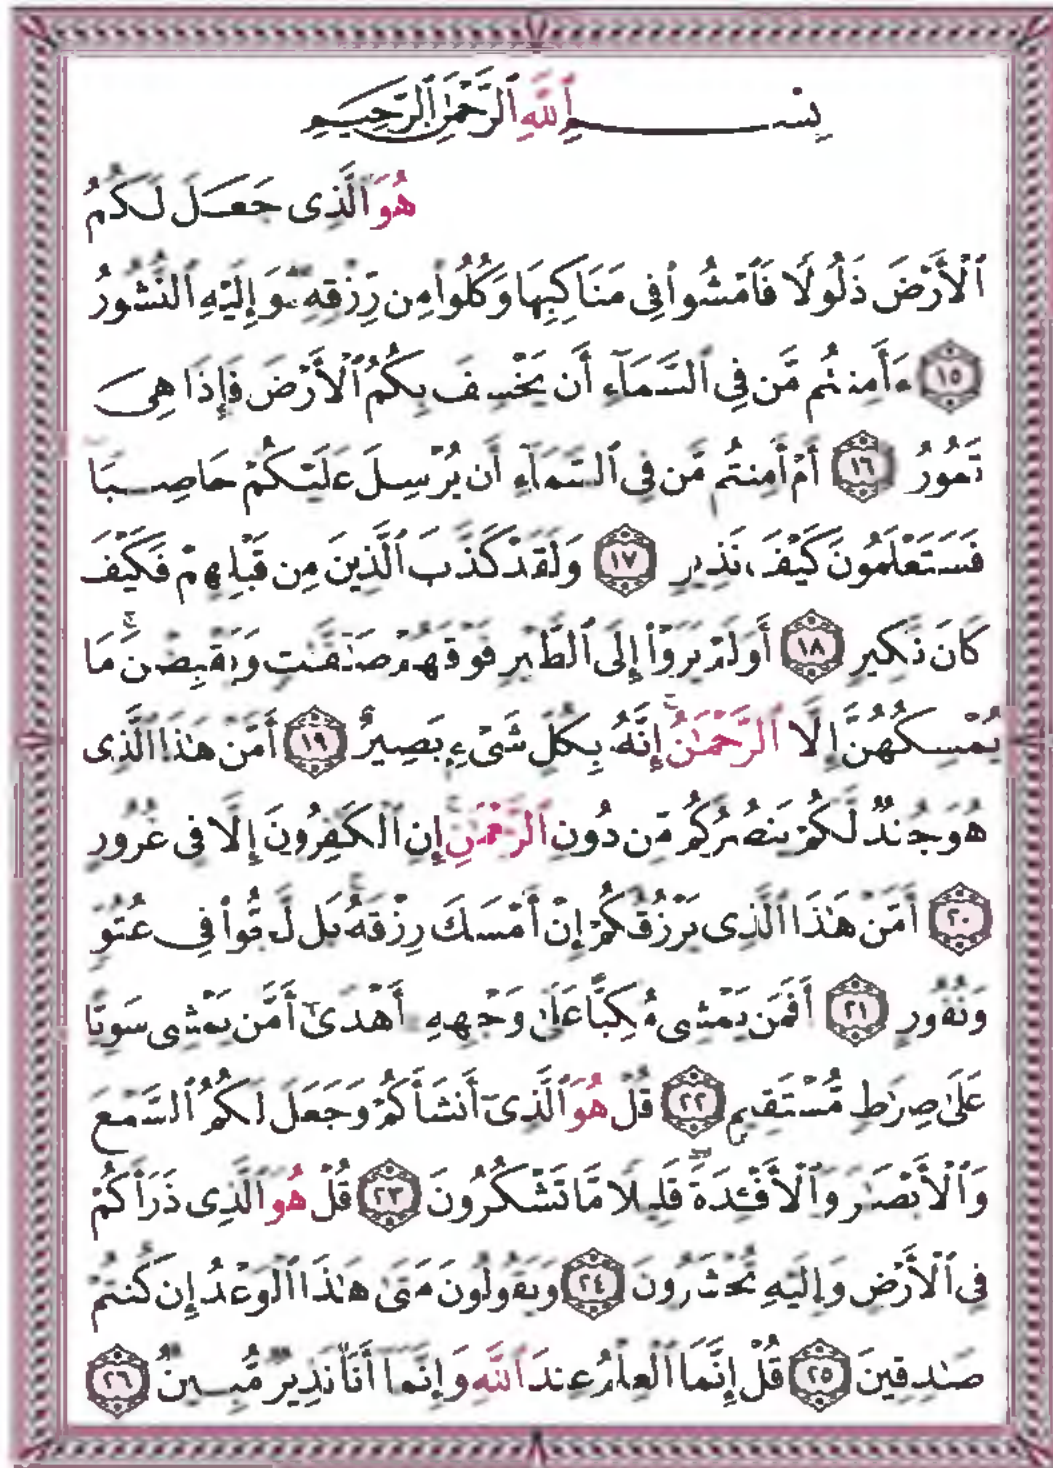 بِسْمِ ٱللَّهِ ٱلرَّحْمَٰنِ ٱلرَّحِيمِ
هُوَ ٱلَّذِى جَعَلَ لَكُمُ
ٱلْأَرْضَ ذَلُولًا فَٱمْشُوا۟ فِى مَنَاكِبِهَا وَكُلُوا۟ مِن رِّزْقِهِۦ ۖ وَإِلَيْهِ ٱلنُّشُورُ
﴿١٥﴾ ءَأَمِنتُم مَّن فِى ٱلسَّمَآءِ أَن يَخْسِفَ بِكُمُ ٱلْأَرْضَ فَإِذَا هِىَ
تَمُورُ ﴿١٦﴾ أَمْ أَمِنتُم مَّن فِى ٱلسَّمَآءِ أَن يُرْسِلَ عَلَيْكُمْ حَاصِبًا
فَسَتَعْلَمُونَ كَيْفَ نَذِيرِ ﴿١٧﴾ وَلَقَدْ كَذَّبَ ٱلَّذِينَ مِن قَبْلِهِمْ فَكَيْفَ
كَانَ نَكِيرِ ﴿١٨﴾ أَوَلَمْ يَرَوْا۟ إِلَى ٱلطَّيْرِ فَوْقَهُمْ صَٰٓفَّٰتٍ وَيَقْبِضْنَ ۚ مَا
يُمْسِكُهُنَّ إِلَّا ٱلرَّحْمَٰنُ ۚ إِنَّهُۥ بِكُلِّ شَىْءٍۭ بَصِيرٌ ﴿١٩﴾ أَمَّنْ هَٰذَا ٱلَّذِى
هُوَ جُندٌ لَّكُمْ يَنصُرُكُم مِّن دُونِ ٱلرَّحْمَٰنِ ۚ إِنِ ٱلْكَٰفِرُونَ إِلَّا فِى غُرُورٍ
﴿٢٠﴾ أَمَّنْ هَٰذَا ٱلَّذِى يَرْزُقُكُمْ إِنْ أَمْسَكَ رِزْقَهُۥ ۚ بَل لَّجُّوا۟ فِى عُتُوٍّ
وَنُفُورٍ ﴿٢١﴾ أَفَمَن يَمْشِى مُكِبًّا عَلَىٰ وَجْهِهِۦٓ أَهْدَىٰٓ أَمَّن يَمْشِى سَوِيًّا
عَلَىٰ صِرَٰطٍ مُّسْتَقِيمٍ ﴿٢٢﴾ قُلْ هُوَ ٱلَّذِىٓ أَنشَأَكُمْ وَجَعَلَ لَكُمُ ٱلسَّمْعَ
وَٱلْأَبْصَٰرَ وَٱلْأَفْـِٔدَةَ ۖ قَلِيلًا مَّا تَشْكُرُونَ ﴿٢٣﴾ قُلْ هُوَ ٱلَّذِى ذَرَأَكُمْ
فِى ٱلْأَرْضِ وَإِلَيْهِ تُحْشَرُونَ ﴿٢٤﴾ وَيَقُولُونَ مَتَىٰ هَٰذَا ٱلْوَعْدُ إِن كُنتُمْ
صَٰدِقِينَ ﴿٢٥﴾ قُلْ إِنَّمَا ٱلْعِلْمُ عِندَ ٱللَّهِ وَإِنَّمَآ أَنَا۠ نَذِيرٌ مُّبِينٌ ﴿٢٦﴾